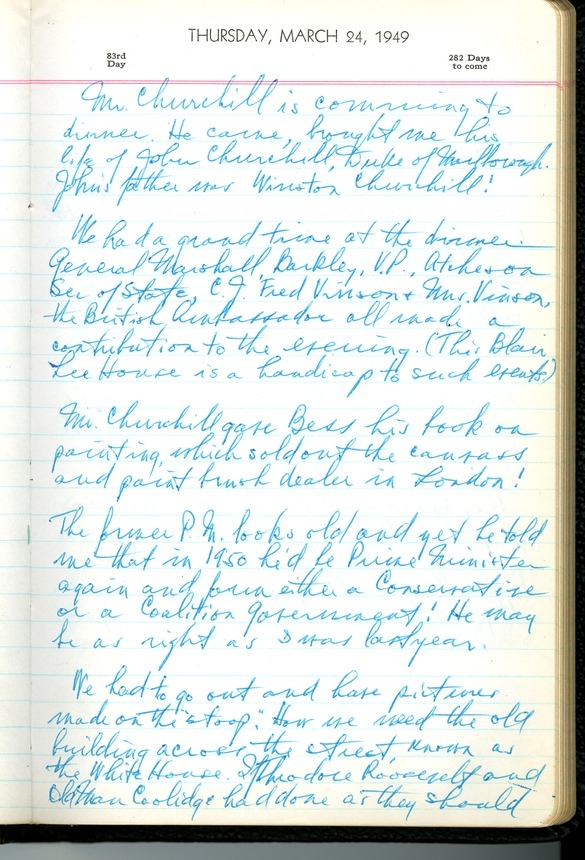 THURSDAY, MARCH 24, 1949
83rd
Day
282 Days
to come
Mr. Churchill is comming to
dinner. He came, brought me his
life of John Churchill, Duke of Marlborough.
John's father was Winston Churchill!
We had a grand time at the dinner.
General Marshall, Barkley, V.P., Atcheson
Sec of State, C.J. Fred Vinson & Mrs. Vinson,
the British Ambassador all made a
contribution to the evening. (This Blair,
Lee House is a handicap to such events)
Mr. Churchill gave Bess his book on
painting, which sold out the canvass
and paint brush dealer in London!
The former P.M. looks old and yet he told
me that in 1950 he'd be Prime Minister
again and form either a Conservative
or a Coalition Government! He may
be as right as I was last year.
We had to go out and have pictures
made on the "stoop". How we need the old
building across the street, known as
the White House. If Theodore Roosevelt and
Old man Coolidge had done as they should